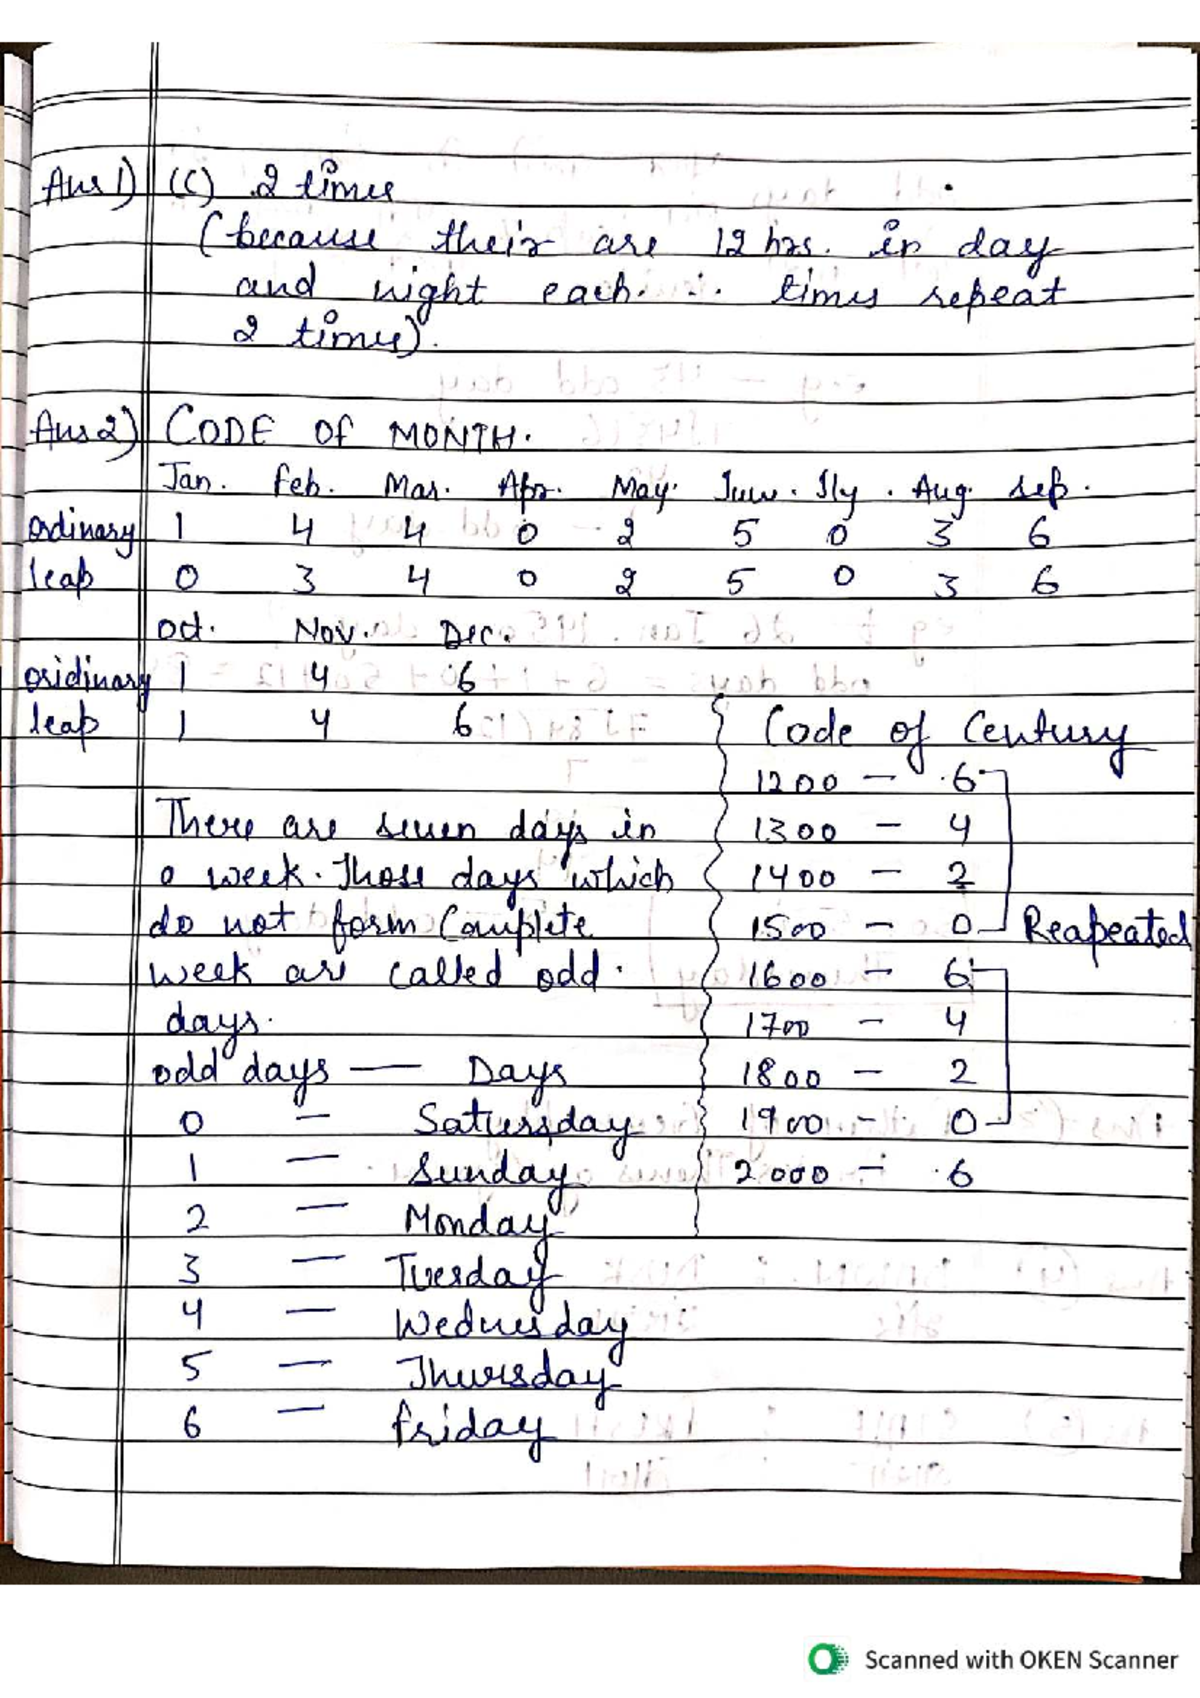 Ans 1) (C) 2 times
(because their are 12 hrs. in day
and night each. ∴ times repeat
2 times).
Ans 2) CODE OF MONTH.
Jan. Feb. Mar. Apr. May. June. Jly. Aug. Sep.
ordinary 1 4 4 0 2 5 0 3 6
leap 0 3 4 0 2 5 0 3 6
Oct. Nov. Dec.
oridinary 1 4 6
leap 1 4 6
Code of Century
1200 - 6
1300 - 4
1400 - 2
1500 - 0
Reapeated
1600 - 6
1700 - 4
1800 - 2
1900 - 0
2000 - 6
There are seven days in
a week. Those days which
do not form Complete
week are called odd
days.
odd days — Days
0 - Saturday
1 - Sunday
2 - Monday
3 - Tuesday
4 - Wednesday
5 - Thursday
6 - friday
Scanned with OKEN Scanner